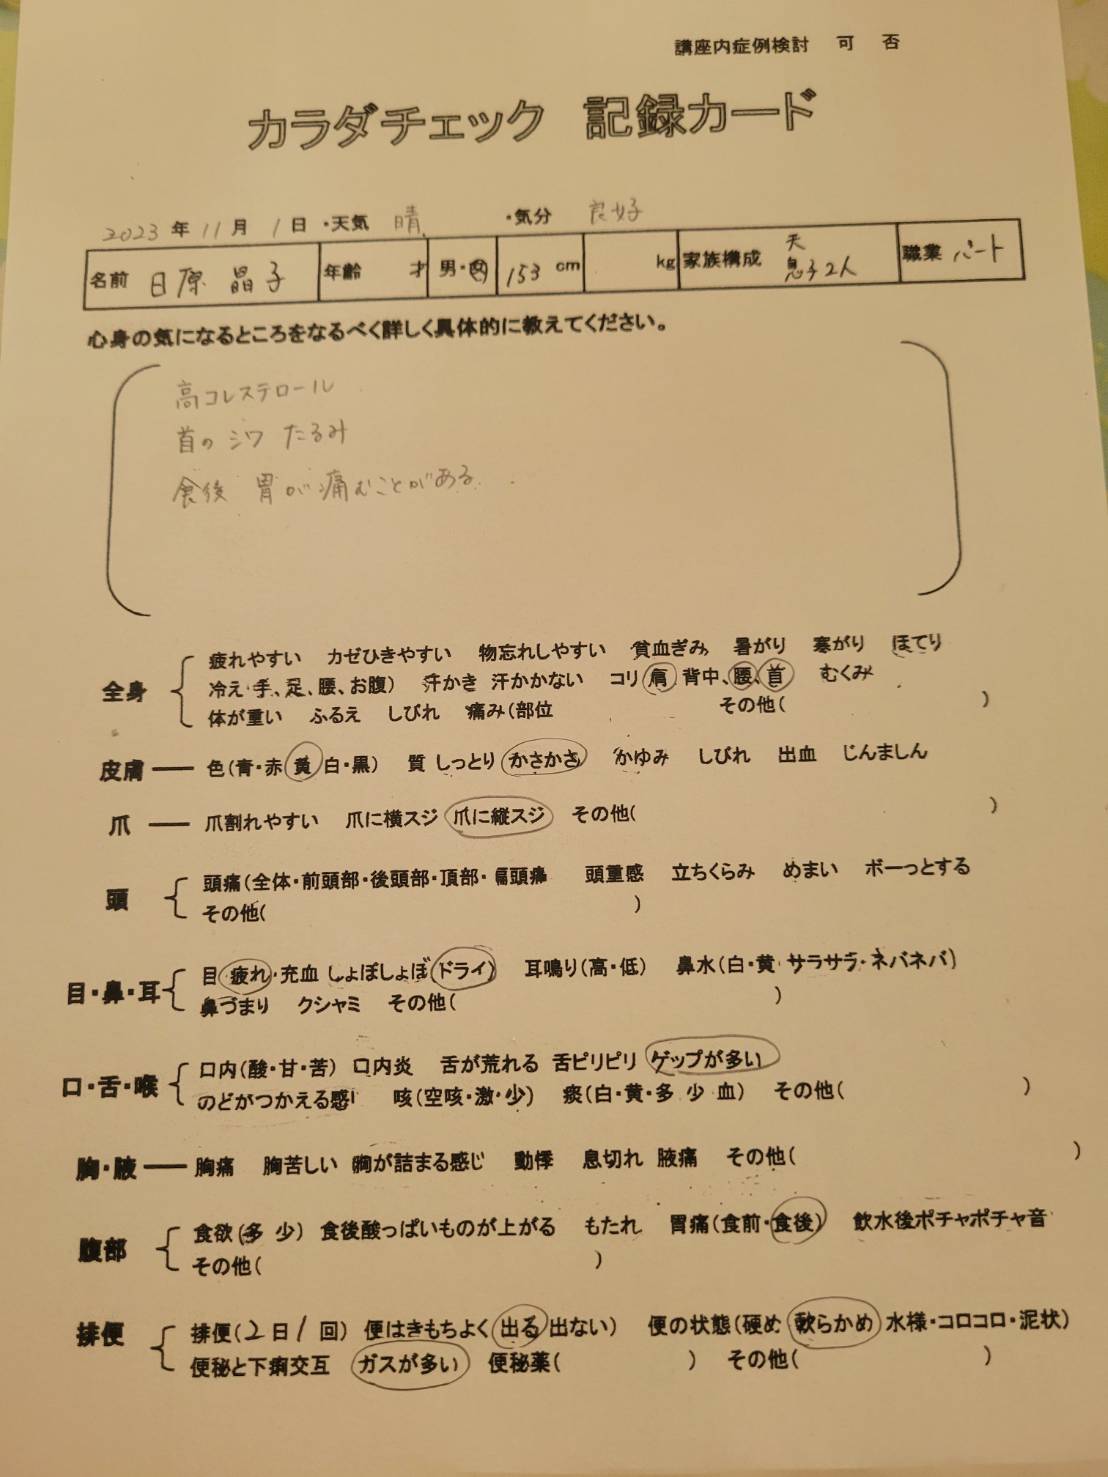 講座内症例検討 可 否
カラダチェック 記録カード
2023 年 11 月 1 日 ・天気 晴 ・気分 良好
名前 日原 晶子 年齢 才 男・女 153 cm kg 家族構成 夫 息子2人 職業 パート
心身の気になるところをなるべく詳しく具体的に教えてください。
高コレステロール
首のシワ たるみ
食後 胃が痛むことがある
全身 疲れやすい カゼひきやすい 物忘れしやすい 貧血ぎみ 暑がり 寒がり ほてり
冷え 手、足、腰、お腹) 汗かき 汗かかない コリ 肩 背中、腰、首 むくみ
体が重い ふるえ しびれ 痛み(部位 その他( )
皮膚 色(青・赤 黄 白・黒) 質 しっとり かさかさ かゆみ しびれ 出血 じんましん
爪 爪割れやすい 爪に横スジ 爪に縦スジ その他( )
頭 頭痛(全体・前頭部・後頭部・頂部・偏頭痛 頭重感 立ちくらみ めまい ボーっとする
その他( )
目・鼻・耳 目 疲れ・充血 しょぼしょぼ ドライ) 耳鳴り(高・低) 鼻水(白・黄・サラサラ・ネバネバ)
鼻づまり クシャミ その他( )
口・舌・喉 口内(酸・甘・苦) 口内炎 舌が荒れる 舌ピリピリ ゲップが多い
のどがつかえる感じ 咳(空咳・激・少) 痰(白・黄・多 少 血) その他( )
胸・腋 胸痛 胸苦しい 胸が詰まる感じ 動悸 息切れ 腋痛 その他( )
腹部 食欲(多 少) 食後酸っぱいものが上がる もたれ 胃痛(食前・食後) 飲水後ポチャポチャ音
その他( )
排便 排便(2日1回) 便はきもちよく 出る 出ない) 便の状態(硬め 軟らかめ 水様・コロコロ・泥状)
便秘と下痢交互 ガスが多い 便秘薬( ) その他( )